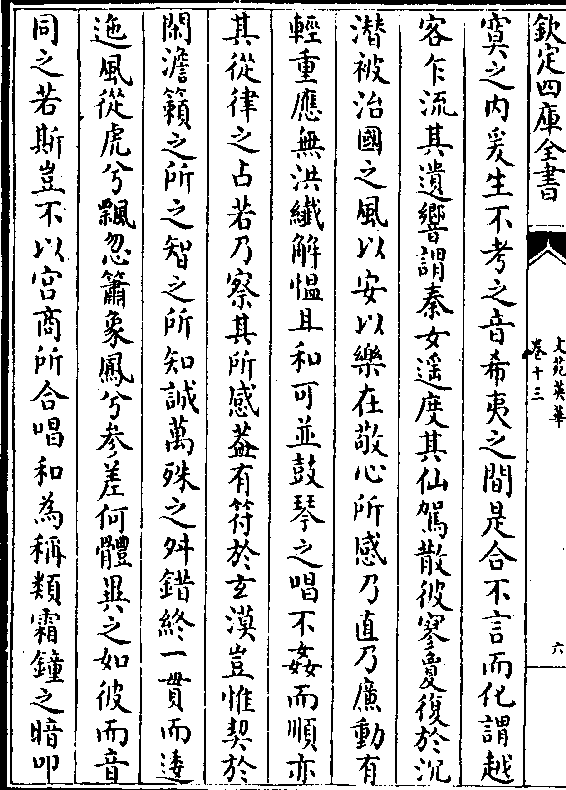 欽定四庫全書
文苑英華
卷十三
六
寞之内爰生不考之音希夷之間是合不言而化謂越
客乍流其遺響謂秦女遥度其仙駕散彼寥敻復於沉
潜被治國之風以安以樂在敬心所感乃直乃亷動有
輕重應無洪纎解愠且和可並鼓琴之唱不姦而順亦
其從律之占若乃察其所感葢有符於玄漠豈惟契於
閑澹籟之所之智之所知誠萬殊之舛錯終一貫而逶
迤風從虎兮飄忽簫象鳳兮参差何體異之如彼而音
同之若斯豈不以宫商所合唱和為稱類霜鐘之暗叩